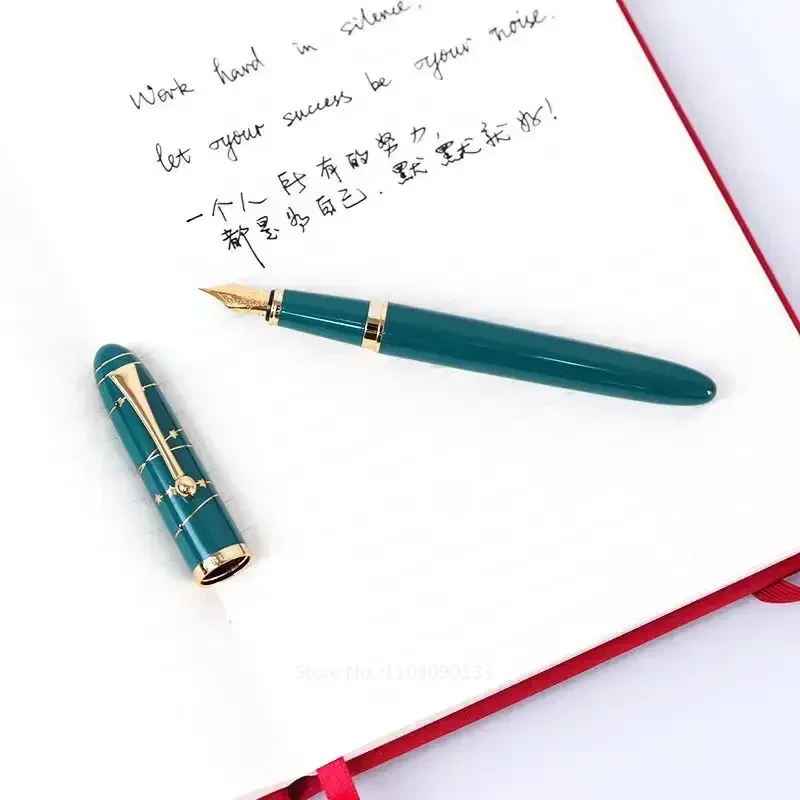 Work hard in silence,
let your success be your noise.
一个人所有的努力,
都是为自己.默默就好!
Store No.:1104090133